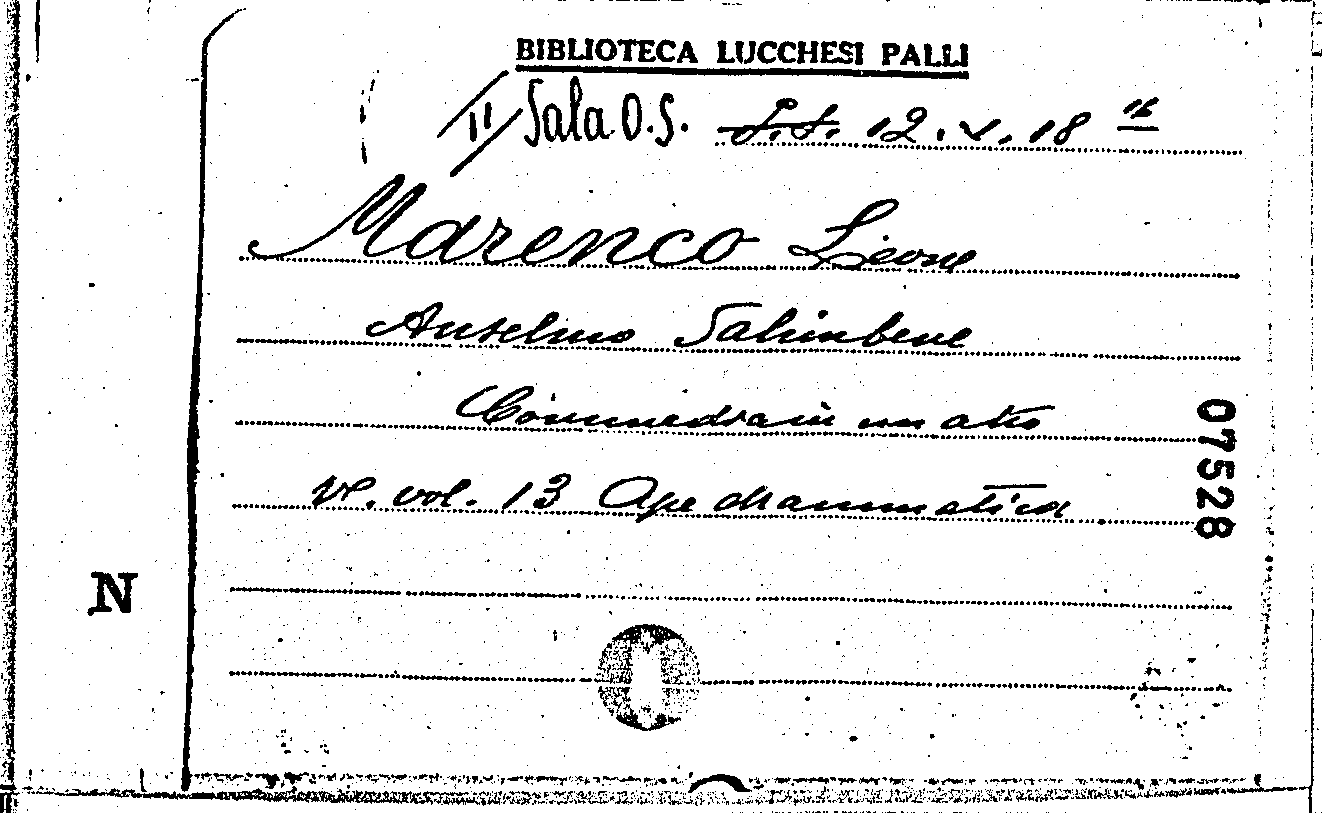 BIBLIOTECA LUCCHESI PALLI
II Sala O.S. S.S. 12. V. 18 16
Marenco Leone
Anselmo Salimbene
Commedia in un atto
ve. vol. 13 Ape drammatica
07528
N